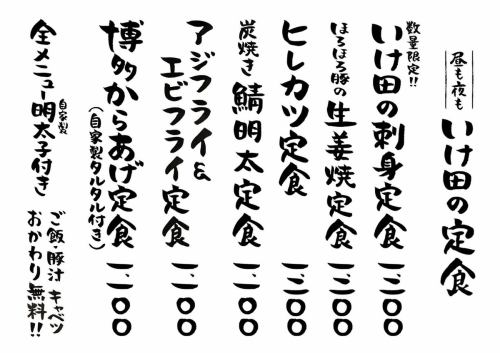 昼も夜も
いけ田の定食
数量限定!!
いけ田の刺身定食 一、三〇〇
ほろほろ豚の生姜焼定食 一、二〇〇
ヒレカツ定食 一、三〇〇
炭焼き鯖明太定食 一、一〇〇
アジフライ&
エビフライ定食 一、一〇〇
博多からあげ定食 一、一〇〇
(自家製タルタル付き)
自家製
全メニュー明太子付き
ご飯・豚汁 キャベツ
おかわり無料!!